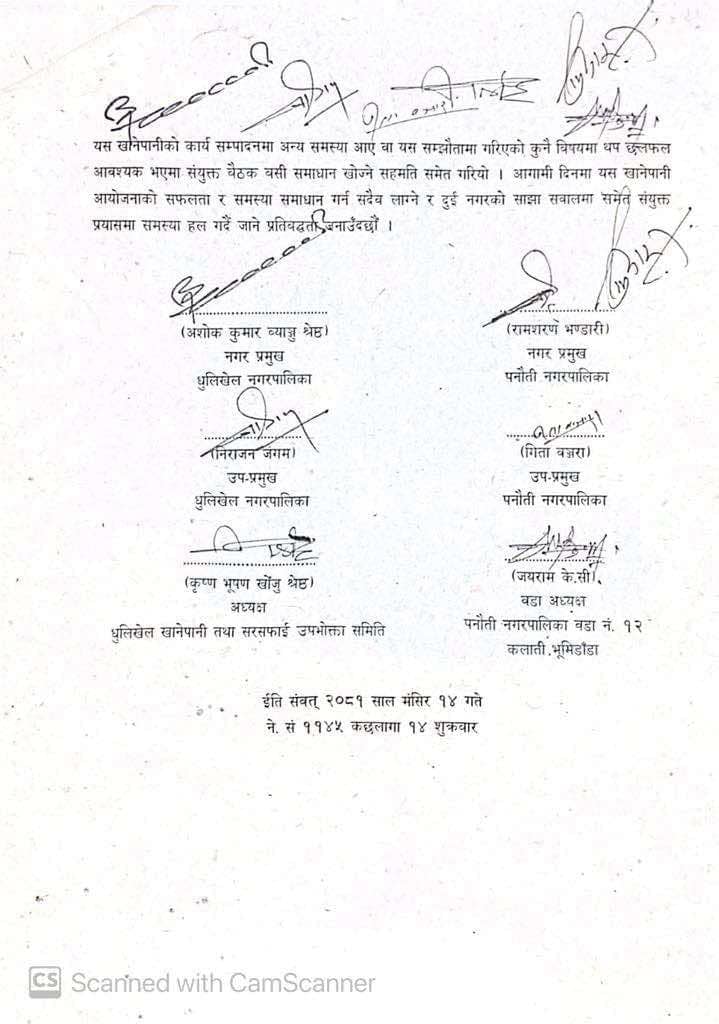 यस खानेपानीको कार्य सम्पादनमा अन्य समस्या आए वा यस सम्झौतामा गरिएको कुनै विषयमा थप छलफल
आवश्यक भएमा संयुक्त बैठक वसी समाधान खोज्ने सहमति समेत गरियो । आगामी दिनमा यस खानेपानी
आयोजनाको सफलता र समस्या समाधान गर्न सदैव लाग्ने र दुई नगरको साझा सवालमा समेत संयुक्त
प्रयासमा समस्या हल गर्दै जाने प्रतिवद्धता जनाउँदछौं ।
(अशोक कुमार व्याञ्जु श्रेष्ठ)
नगर प्रमुख
धुलिखेल नगरपालिका
(रामशरण भण्डारी)
नगर प्रमुख
पनौती नगरपालिका
(निराजन जंगम)
उप-प्रमुख
धुलिखेल नगरपालिका
(गिता वञ्जरा)
उप-प्रमुख
पनौती नगरपालिका
(कृष्ण भूषण खोंजु श्रेष्ठ)
अध्यक्ष
धुलिखेल खानेपानी तथा सरसफाई उपभोक्ता समिति
(जयराम के.सी)
वडा अध्यक्ष
पनौती नगरपालिका वडा नं. १२
कलाती भूमिडाँडा
ईति संवत् २०८१ साल मंसिर १४ गते
ने. सं ११४५ कछलागा १४ शुक्रवार
CS Scanned with CamScanner